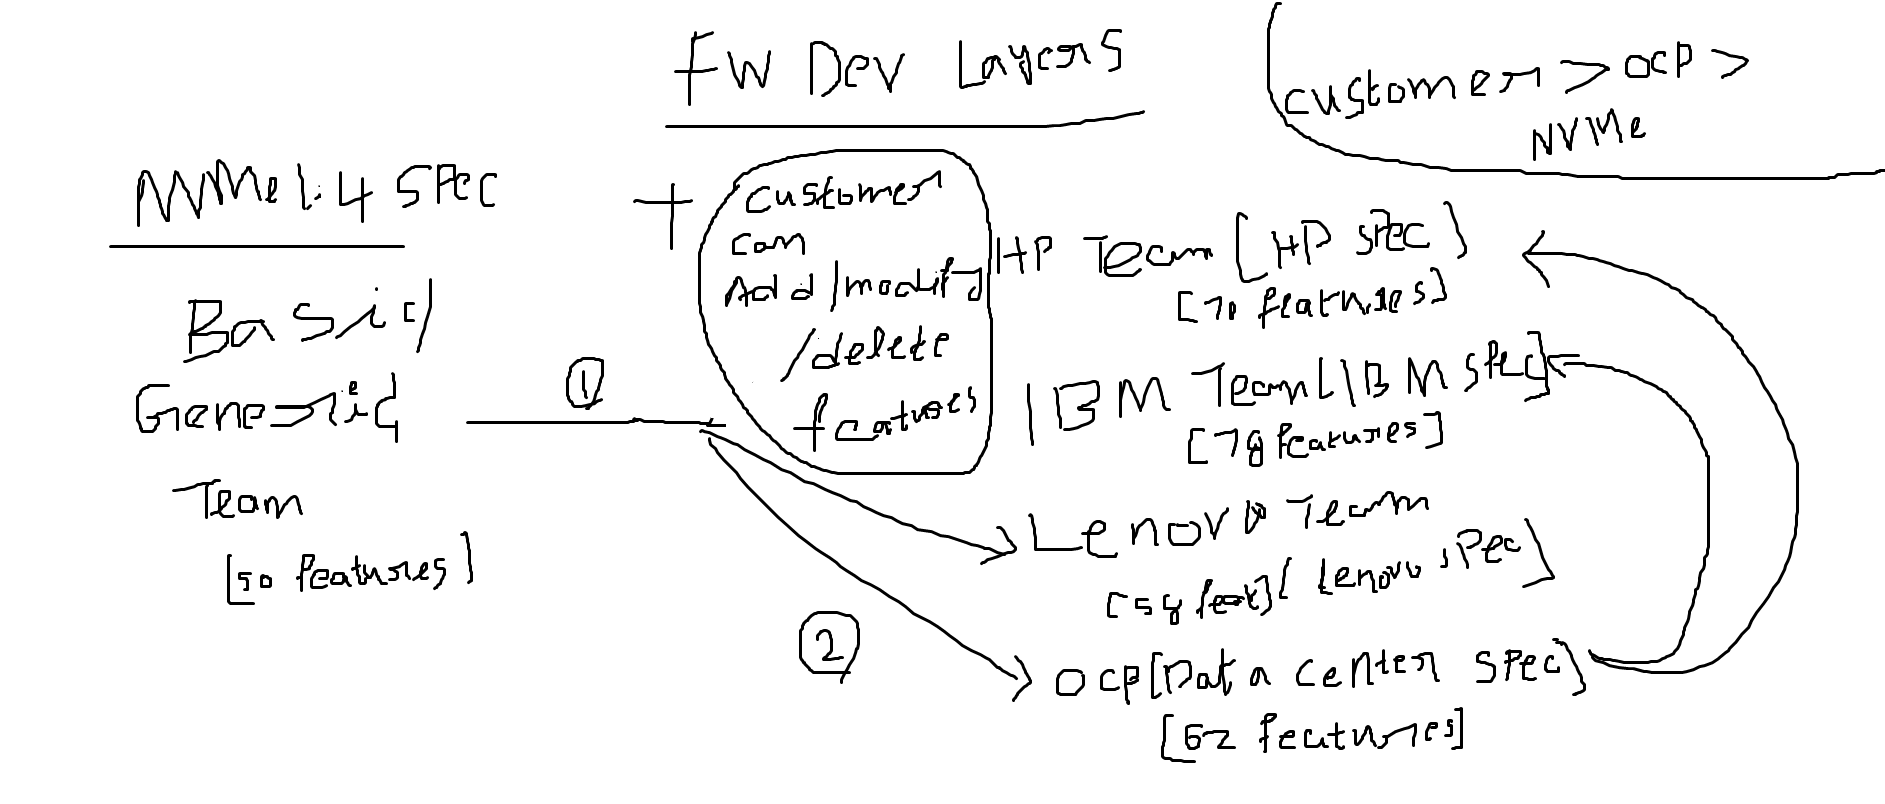 FW Dev Layers
customer > OCP >
NVMe
NVMe 1.4 SPEC
Basic/
Generic
Team
[50 features]
①
②
+
customer
can
Add/modify
/delete
features
HP Team [HP SPEC]
[70 features]
IBM Team [IBM SPEC]
[78 features]
Lenovo Team
[58 feat] [Lenovo SPec]
OCP [Data center SPEC]
[62 features]